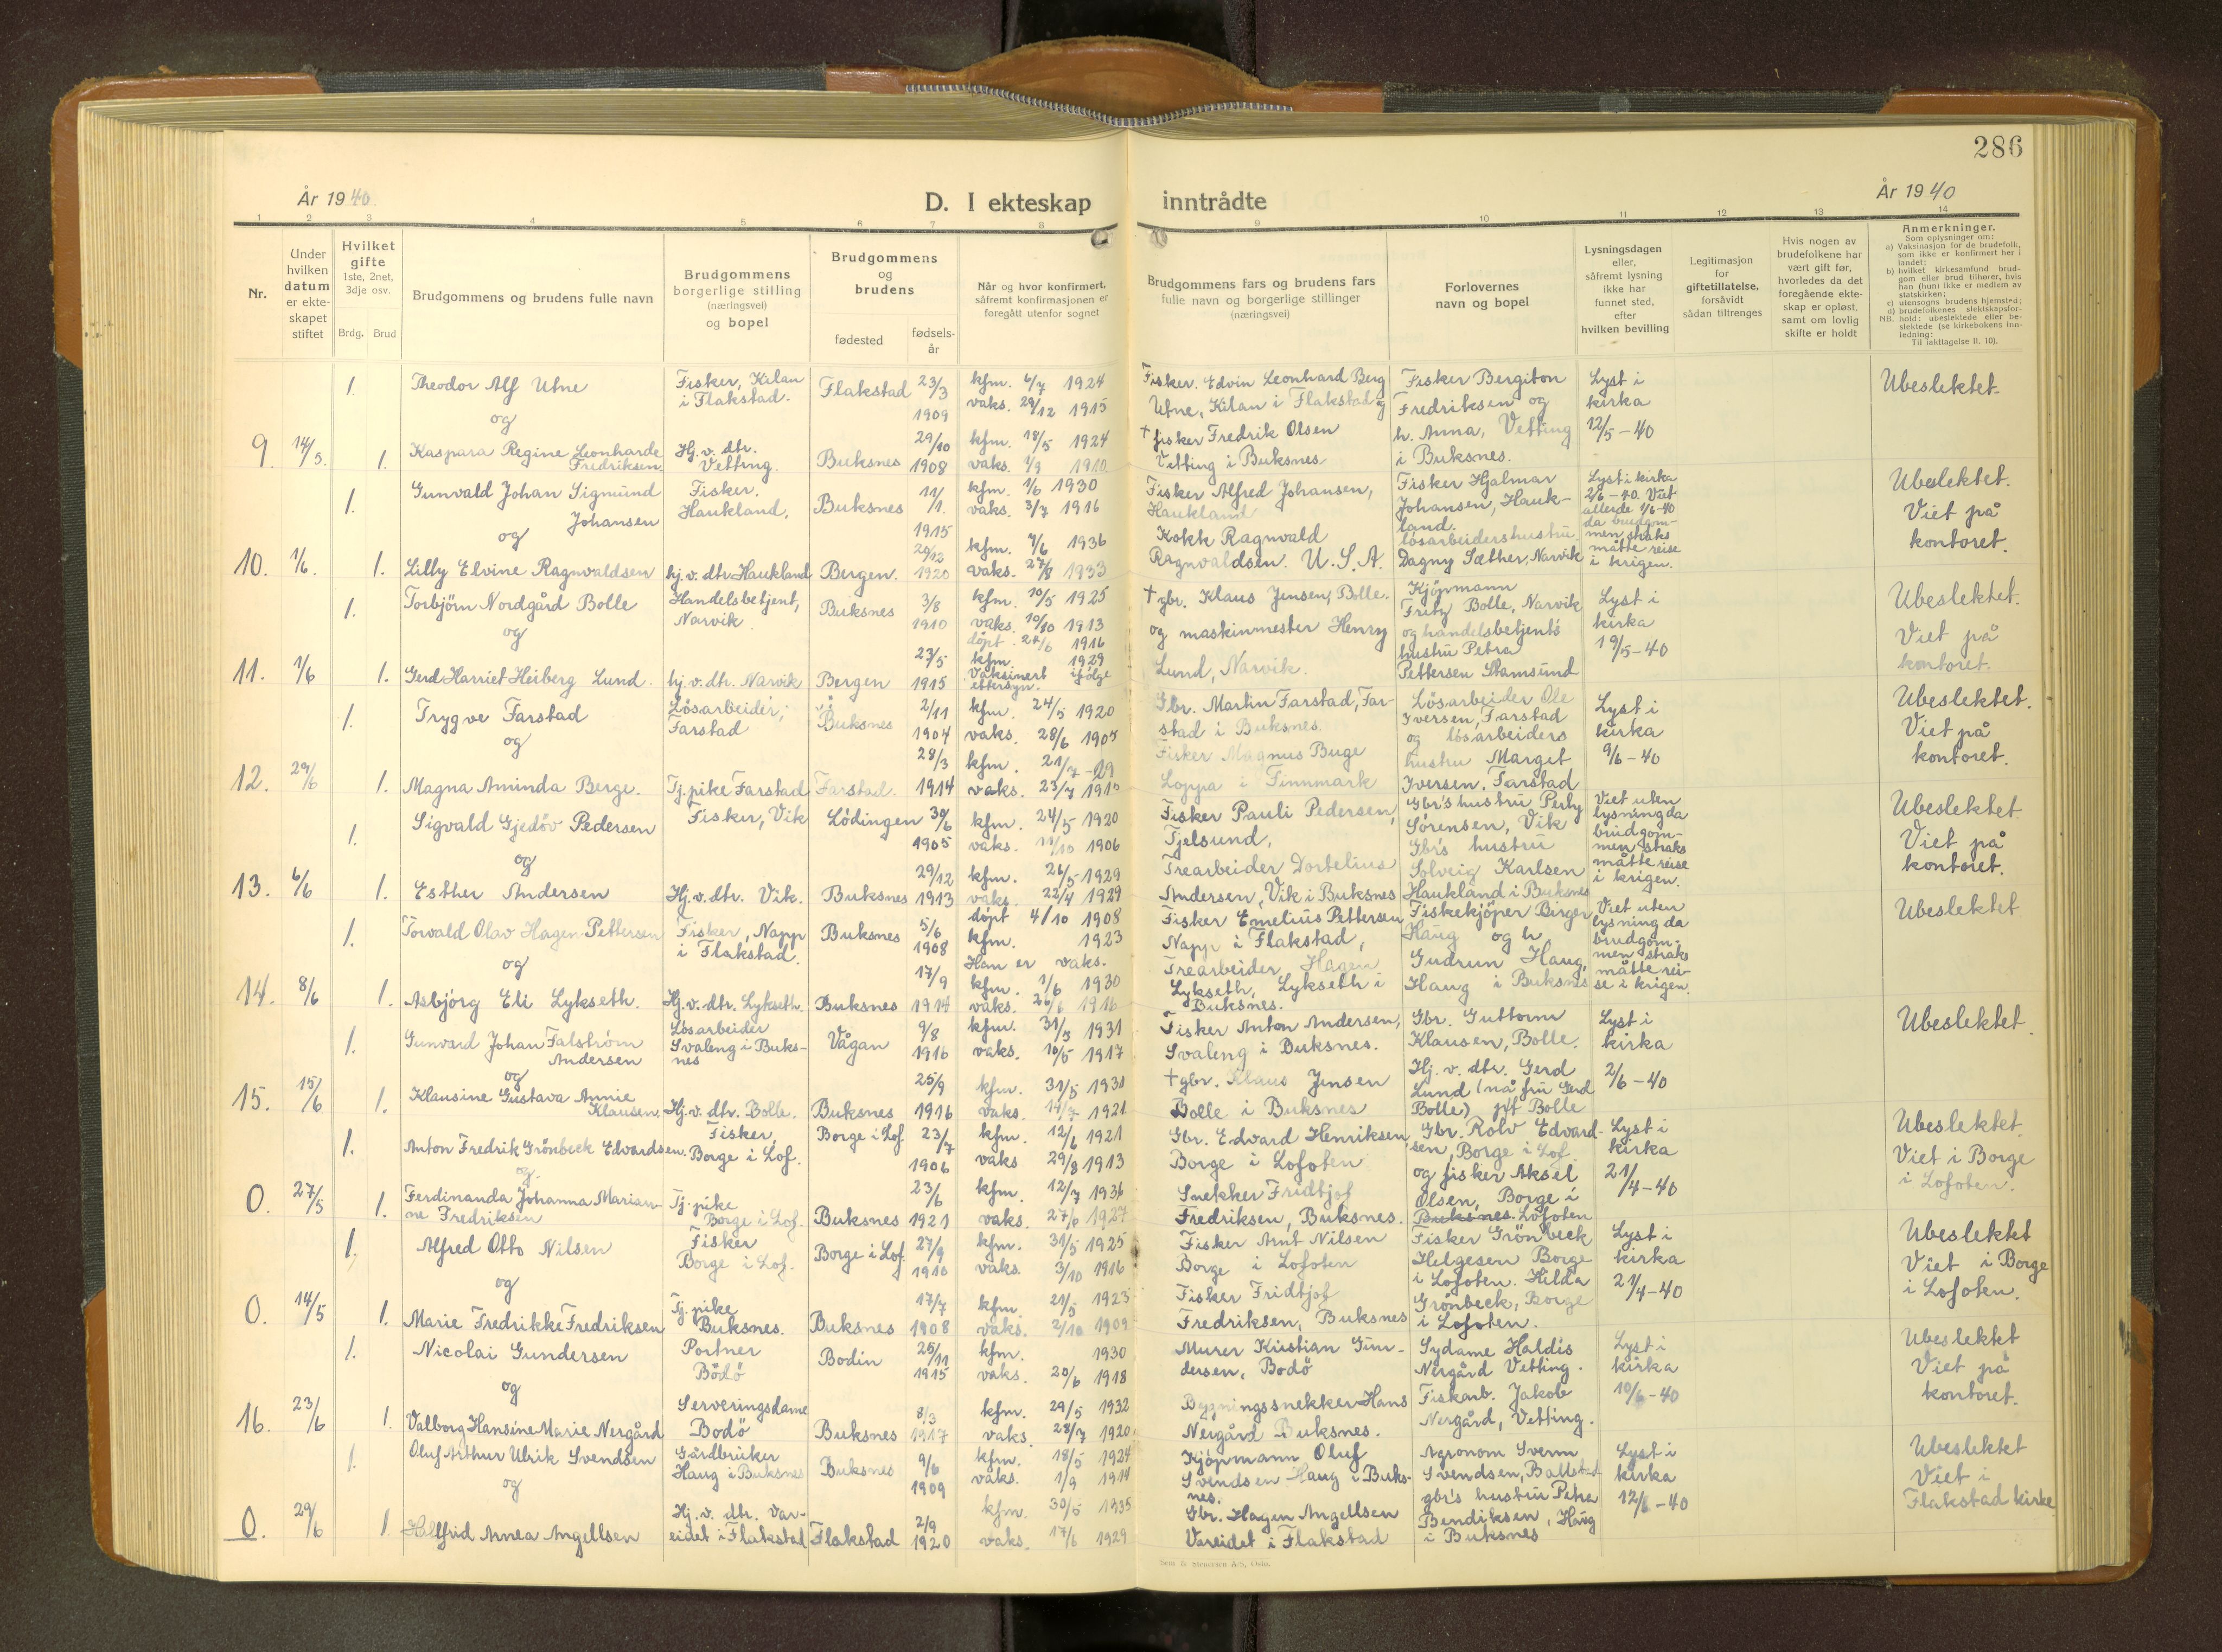 286
År 1940
D. I ekteskap inntrådte
År 1940
1 2 3 4 5 6 7 8 9 10 11 12 13 14
Nr.
Under hvilken datum er ekte-skapet stiftet
Hvilket gifte 1ste, 2net, 3dje osv.
Brdg. Brud
Brudgommens og brudens fulle navn
Brudgommens borgerlige stilling (næringsvei) og bopel
Brudgommens og brudens
fødested
fødsels-år
Når og hvor konfirmert, såfremt konfirmasjonen er foregått utenfor sognet
Brudgommens fars og brudens fars fulle navn og borgerlige stillinger (næringsvei)
Forlovernes navn og bopel
Lysningsdagen eller, såfremt lysning ikke har funnet sted, efter hvilken bevilling
Legitimasjon for giftetillatelse, forsåvidt sådan tiltrenges
Hvis nogen av brudefolkene har vært gift før, hvorledes da det foregående ekte-skap er opløst, samt om lovlig skifte er holdt
Anmerkninger.
Som oplysninger om:
a) Vaksinasjon for de brudefolk, som ikke er konfirmert her i landet;
b) hvilket kirkesamfund brud-gom eller brud tilhører, hvis han (hun) ikke er medlem av statskirken;
c) utensogns brudens hjemsted;
d) brudefolkenes slektskapsfor-hold: ubeslektede eller be-slektede (se kirkebokens inn-ledning:
NB. Til iakttagelse II. 10).
1. Theodor Alf Utne
Fisker, Kilan i Flakstad.
Flakstad 23/3 1909
kfm. 6/7 1924
vaks. 29/12 1915
Fisker. Edvin Leonhard Berg Utne, Kilan i Flakstad og
Fisker Bergiton Fredriksen og h. Anna, Vetting i Buksnes.
Lyst i kirka 12/5-40
Ubeslektet.
og
9. 14/5. 1. Kaspara Regine Leonharde Fredriksen.
Hj. v. dtr. Vetting.
Buksnes 29/10 1908
kfm. 18/5 1924
vaks. 1910
† fisker Fredrik Olsen Vetting i Buksnes
1. Gunvald Johan Sigmund Johansen
Fisker. Haukland.
Buksnes 11/1. 1915
kfm. 1/6 1930
vaks. 3/7 1916
Fisker Alfred Johansen, Haukland
Fisker Hjalmar Johansen, Hauk-land.
løsarbeidershustru Dagny Sæther, Narvik
Lyst i kirka 2/6-40. Viet allerede 1/6-40 da brudgom-men straks måtte reise i krigen.
Ubeslektet.
Viet på kontoret.
og
10. 1/6. 1. Lilly Elvine Ragnvaldsen
hj. v. dtr. Haukland
Bergen. 20/12 1920
kfm. 7/6 1936
vaks. 27/8 1933
Kokk Ragnvald Ragnvaldsen. U.S.A.
1. Torbjörn Nordgård Bolle
Handelsbetjent, Narvik
Buksnes 3/8 1910
kfm. 10/5 1925
vaks. 10/10 1913
† gbr. Klaus Jensen, Bolle.
Kjöpmann Fritz Bolle, Narvik og handelsbetjents hustru Petra Pettersen Stamsund
Lyst i kirka 19/5-40
Ubeslektet.
Viet på kontoret.
og
11. 1/6 1. Gerd Harriet Heiberg Lund.
hj. v. dtr. Narvik
Bergen 23/5 1915
döpt 27/6 1916
kfm. 1929
Vaksinert ifølge ettersyn.
og maskinmester Henry Lund, Narvik.
1. Trygve Farstad
Løsarbeider, Farstad
Buksnes 2/11 1904
kfm. 24/5 1920
vaks. 28/6 1905
Gbr. Martin Farstad, Far-stad i Buksnes.
Løsarbeider Ole Iversen, Farstad og løsarbeiders hustru Margit Iversen. Farstad
Lyst i kirka 9/6-40
Ubeslektet.
Viet på kontoret.
og
12. 29/6 1. Magna Aminda Berge.
Tj. pike Farstad
Farstad. 28/3 1914
kfm. 21/7-29
vaks. 23/7 1915
Fisker Magnus Buge Loppa i Finnmark
1. Sigvald Gjedöv Pedersen
Fisker, Vik
Lödingen 30/6 1905
kfm. 24/5 1920
vaks. 1906
Fisker Pauli Pedersen, Tjelsund,
Gbr's hustru Perly Sørensen, Vik
Gbr's hustru Solveig Karlsen Haukland i Buksnes
Viet uten lysning da brudgom-men straks måtte reise i krigen.
Ubeslektet
Viet på kontoret.
og
13. 6/6 1. Esther Andersen
Hj. v. dtr. Vik.
Buksnes 29/12 1913
kfm. 26/5 1929
vaks. 22/4 1929
Trearbeider Dortelius Andersen, Vik i Buksnes
1. Torvald Olav Hagen-Pettersen
Fisker, Napp i Flakstad.
Buksnes 5/6 1908
döpt 4/10 1908
kfm. 1923
Han er vaks.
Fisker Emelius Pettersen Napp i Flakstad,
Fiskekjöper Birger Haug og h Gudrun Haug, Haug i Buksnes
Viet uten lysning da brudgom-men straks måtte rei-se i krigen.
Ubeslektet
og
14. 8/6 1. Asbjörg Eli Lykseth.
Hj. v. dtr. Lykseth.
Buksnes 17/9 1914
kfm. 1/6 1930
vaks. 26/6 1916
Trearbeider Hagen Lykseth, Lykseth i Buksnes.
1. Gunvard Johan Falström Andersen
Løsarbeider Svaleng i Buks-nes
Vågan 9/8 1916
kfm. 31/5 1931
vaks. 10/5 1917
Fisker Anton Andersen, Svaleng i Buksnes.
Gbr. Guttorm Klausen, Bolle.
Hj. v. dtr. Gerd Lund (nå fru Gerd Bolle) p.t. Bolle
Lyst i kirka 2/6-40
Ubeslektet.
og
15. 15/6 1. Klausine Gustava Annie Klausen.
Hj. v. dtr. Bolle.
Buksnes 25/9 1916
kfm. 31/5 1931
vaks. 14/7 1921
† gbr. Klaus Jensen Bolle i Buksnes
1. Anton Fredrik Grönbeck Edvardsen.
Fisker, Borge i Lof.
Borge i Lof. 23/7 1906
kfm. 12/6 1921
vaks 29/8 1913
Gbr. Edvard Henriksen, Borge i Lofoten
Gbr. Rolv Edvard-sen, Borge i Lof. og fisker Aksel Olsen, Borge i Buksnes. Lofoten
Lyst i kirka 21/4-40
Ubeslektet.
Viet i Borge i Lofoten.
og
0. 27/5 1. Ferdinanda Johanna Marian-ne Fredriksen
Tj. pike Borge i Lof.
Buksnes 23/6 1921
kfm. 12/7 1936
vaks. 27/6 1927
Snekker Fridtjof Fredriksen, Buksnes.
1. Alfred Otto Nilsen
Fisker Borge i Lof.
Borge i Lof. 27/9 1910
kfm. 31/5 1925
vaks. 3/10 1916
Fisker Amt Nilsen Borge i Lofoten
Fisker Grönbeck Helgesen Borge i Lofoten. Hilda Grönbeck, Borge i Lofoten.
Lyst i kirka 21/4-40
Ubeslektet
Viet i Borge i Lofoten.
og
0. 14/5 1. Marie Fredrikke Fredriksen
Tj. pike Buksnes.
Buksnes 17/7 1908
kfm. 21/5 1923
vaks. 2/10 1909
Fisker Fridtjof Fredriksen, Buksnes
1. Nicolai Gundersen
Portner Bödö
Bodin 26/11 1915
kfm. 1930
vaks. 20/6 1918
Murer Kristian Gun-dersen, Bodö
Sydame Haldis Nergård Vetting.
Fiskarb. Jakob Nergård, Vetting.
Lyst i kirka 10/6-40
Ubeslektet
Viet på kontoret.
og
16. 23/6 1. Valborg Hansine Marie Nergård
Serveringsdame Bodö
Buksnes 8/3 1917
kfm. 29/5 1932
vaks. 28/7 1920.
Bygningssnekker Hans Nergård Buksnes.
1. Oluf Arthur Ulrik Svendsen
Gårdbruker Haug i Buksnes
Buksnes 9/6 1909
kfm. 18/5 1924
vaks. 1/9 1914
Kjöpmann Oluf Svendsen Haug i Buks-nes.
Agronom Sverm Svendsen, Ballstad
gbr's hustru Petra Bendiksen, Haug i Buksnes
Lyst i kirka 12/6-40
Ubeslektet
Viet i Flakstad kirke
og
0. 29/6 1. Hallfrid Annea Angellsen
Hj. v. dtr. Var-eidet i Flakstad
Flakstad 2/9 1920
kfm. 30/5 1935
vaks. 17/6 1929
Gbr. Hagen Angellsen Vareidet i Flakstad
Sem & Stenersen A/S, Oslo.